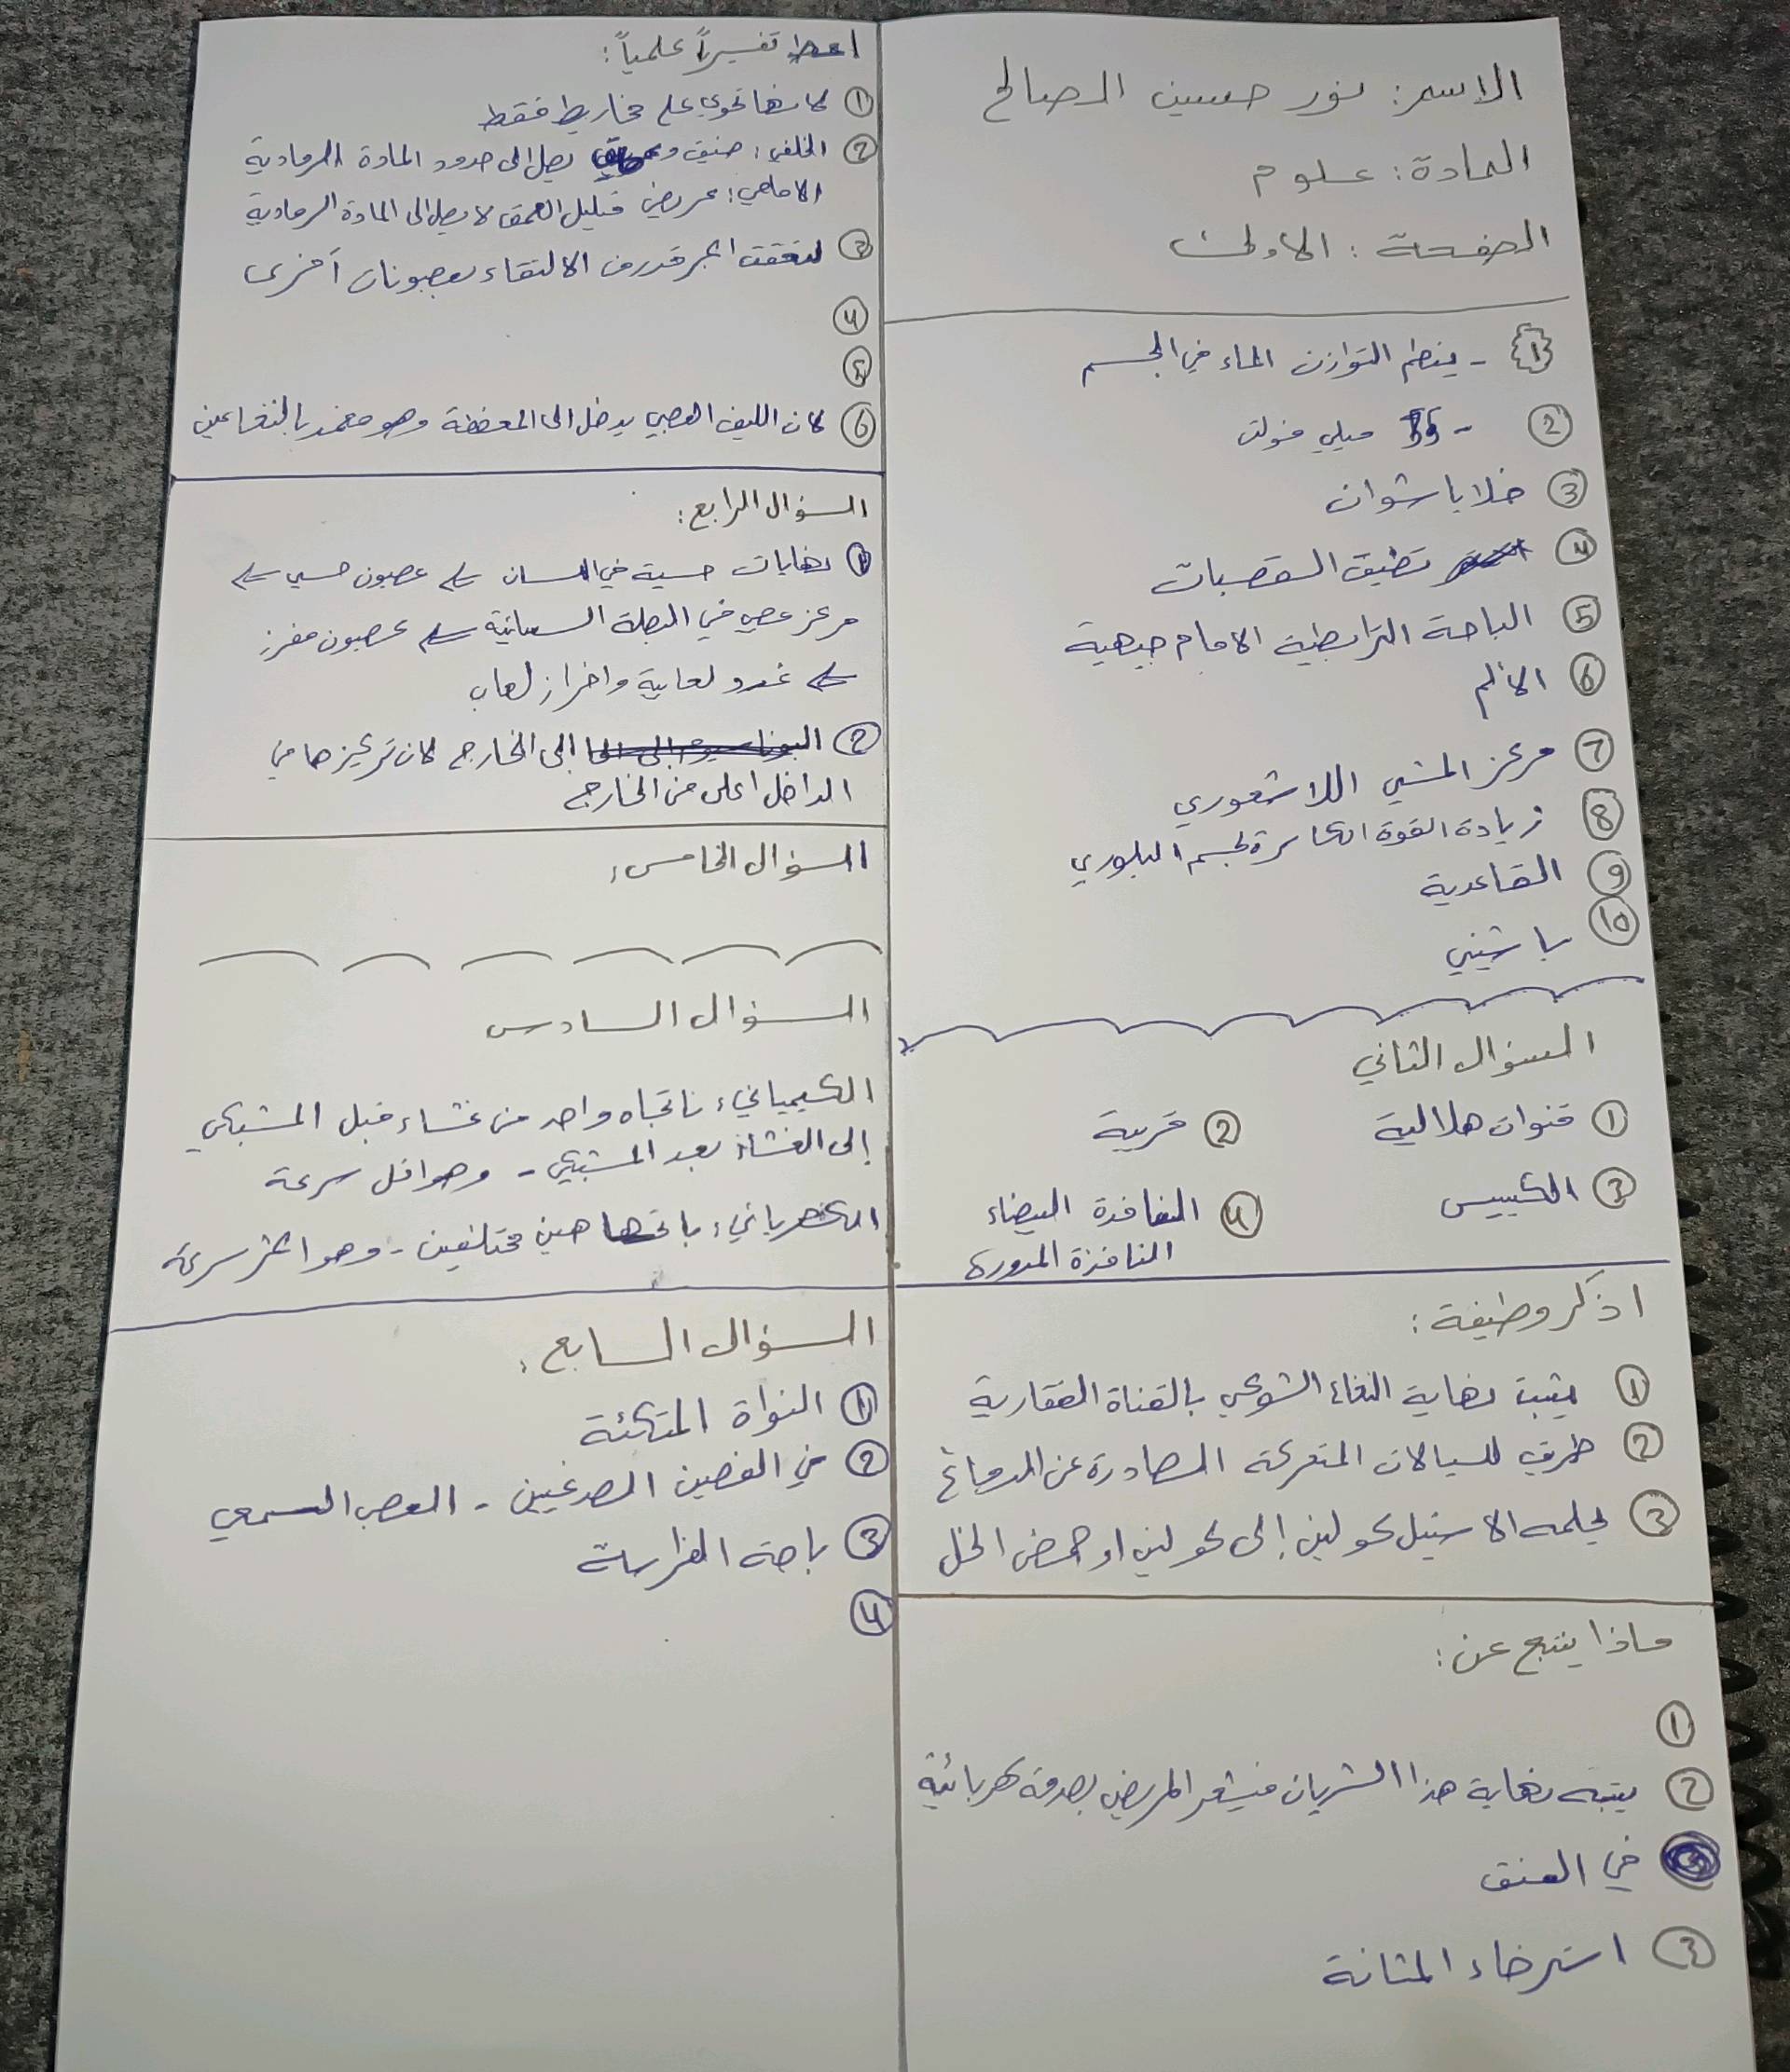 الاسم: نور حسين الصالح
المادة: علوم
الصفحة: الاولى
1 - ينظم التوازن الماء في الجسم
2 - 55 ميلي فولت
3 خلايا شوان
4 تضيق القصبات
5 الباحة الترابطية الامام جبهية
6 الألم
7 مركز المشي اللاشعوري
8 زيادة القوة الكاسرة لجسم البلوري
9 القاعدية
10 باشيني
السؤال الثاني
1 قنوات هلالية 2 قربية
3 الكييس 4 النافذة البيضاء
النافذة المدورة
اذكر وظيفة:
1 يثبت نهاية النخاع الشوكي بالقناة الفقارية
2 طريق للسيالات المتحركة الصادرة عن الدماغ
3 حلمه الاستيل كولين إلى كولين او حمض الخل
ماذا ينتج عن:
1
2 ينبه نهاية هذا الشريان فيشعر المريض بصدمة كهربائية
في العنق
3 استرخاء المثانة
اعط تفسيراً علمياً:
1 لانها تحوي على مخاريط فقط
2 الخلفي: ضيق و يصل الى حدود المادة الرمادية
الامامي: عريض قليل العمق لا يصل الى المادة الرمادية
3 الالتقاء بعصبونات أخرى
4
5
6 لان الليف العصبي يدخل الى المحفظة وهو مغمد بالنخاعين
السؤال الرابع:
1 نهايات حسية في اللسان ← عصبون حسي ←
مركز عصبي في البصلة السيسائية ← عصبون مفرز
← غدد لعابية وافراز لعاب
2 إلى الخارج لان تركيزها في
الداخل اعلى من الخارج
السؤال الخامس:
السؤال السادس
الكيميائي: باتجاه واحد من غشاء قبل المشبكي
إلى الغشاء بعد المشبكي - وهو اقل سرعة
الكهربائي: باتجاهين مختلفين - وهو اكثر سرعة
السؤال السابع:
1 النواة المتكئة
2 في الفصين الصدغيين - العصب السمعي
3 باحة الفراسة
4